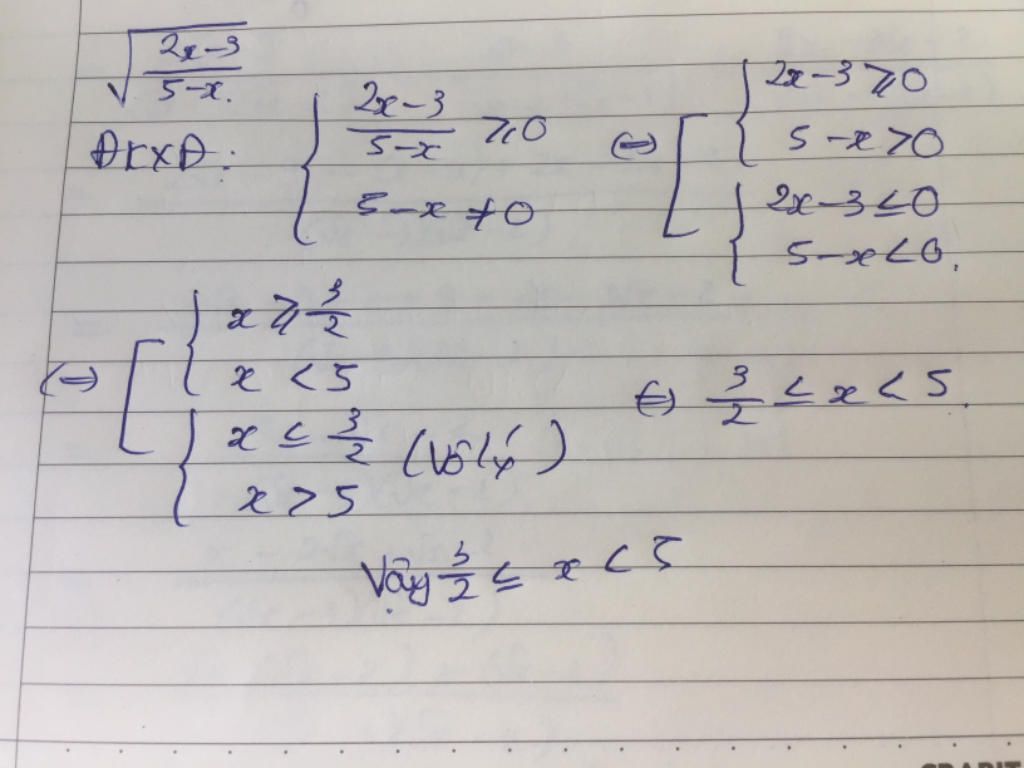 √((2x-3)/(5-x))
ĐKXĐ: { (2x-3)/(5-x) ⩾ 0 ; 5-x ≠ 0 ⇔ [ { 2x-3 ⩾ 0 ; 5-x > 0
{ 2x-3 ≤ 0 ; 5-x < 0.
⇔ [ { x ⩾ 3/2 ; x < 5
{ x ≤ 3/2 ; x > 5 (Vô lý) ⇔ 3/2 ≤ x < 5.
Vậy 3/2 ≤ x < 5